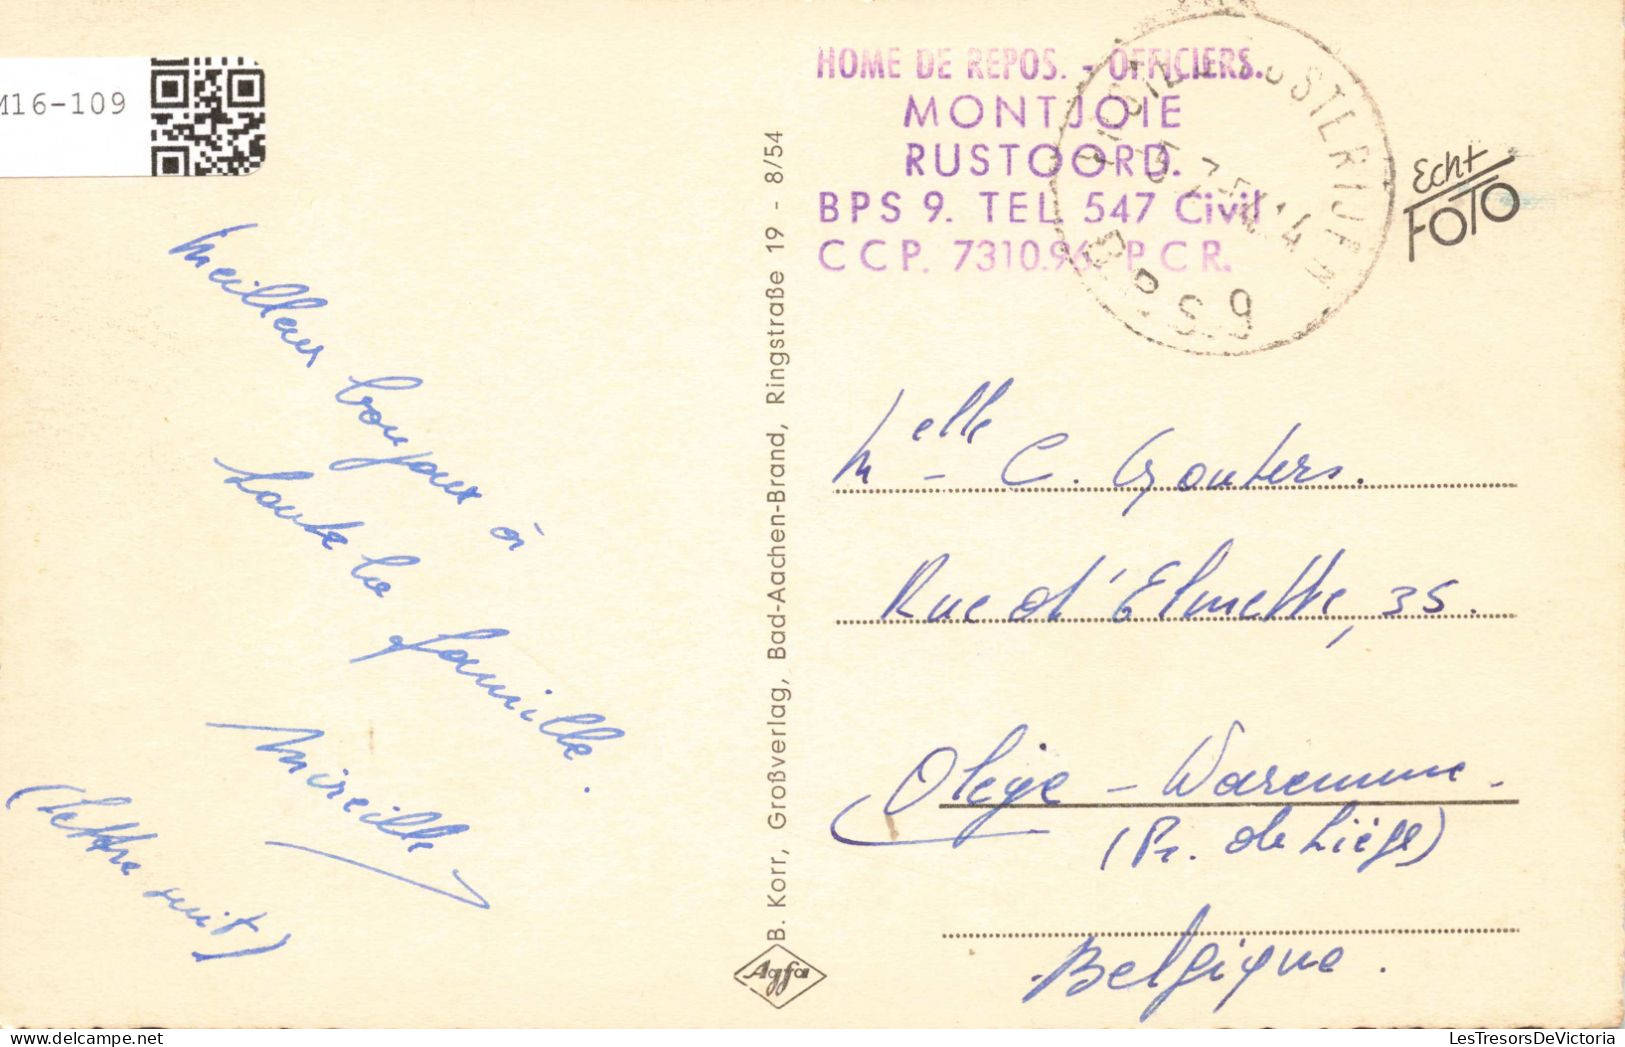 M16-109
HOME DE REPOS. - OFFICIERS.
MONTJOIE
RUSTOORD.
BPS 9. TEL. 547 Civil
CCP. 7310.96. P.C.R.
POSTERIJEN
B.P.S.9
Echt
FOTO
Meilleurs bonjours à
toute la famille.
Mireille
(Lettre suit)
B. Korr, Großverlag, Bad-Aachen-Brand, Ringstraße 19 - 8/54
Agfa
Melle C. Gouters.
Rue d'Elmette, 35.
Oleye - Waremme.
(Pr. de Liège)
Belgique.
LesTresorsDeVictoria